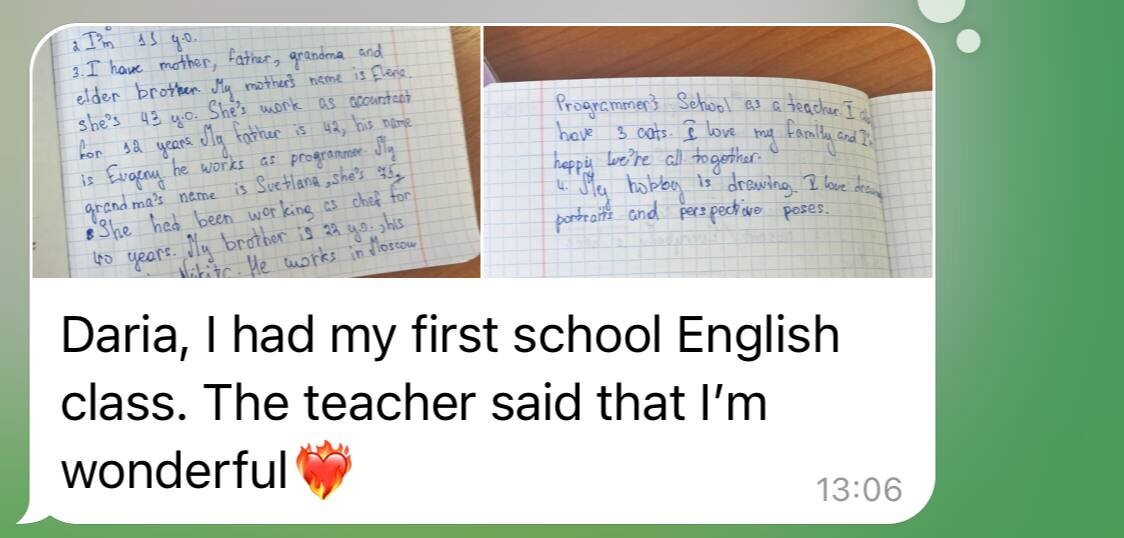 2 I'm 11 y.o.
3. I have mother, father, grandma and
elder brother. My mother's name is Elena.
She's 43 y.o. She's work as acountant
for 12 years. My father is 42, his name
is Evgeny he works as programmer. My
grandma's name is Svetlana, she's 75,
She had been working as chef for
40 years. My brother is 22 y.o., his
Nikita. He works in Moscow
Programmer's School as a teacher. I
have 3 cats. I love my family and I'm
happy we're all together.
4. My hobby is drawing. I love
portraits and perspective poses.
Daria, I had my first school English
class. The teacher said that I'm
wonderful❤️‍🔥
13:06